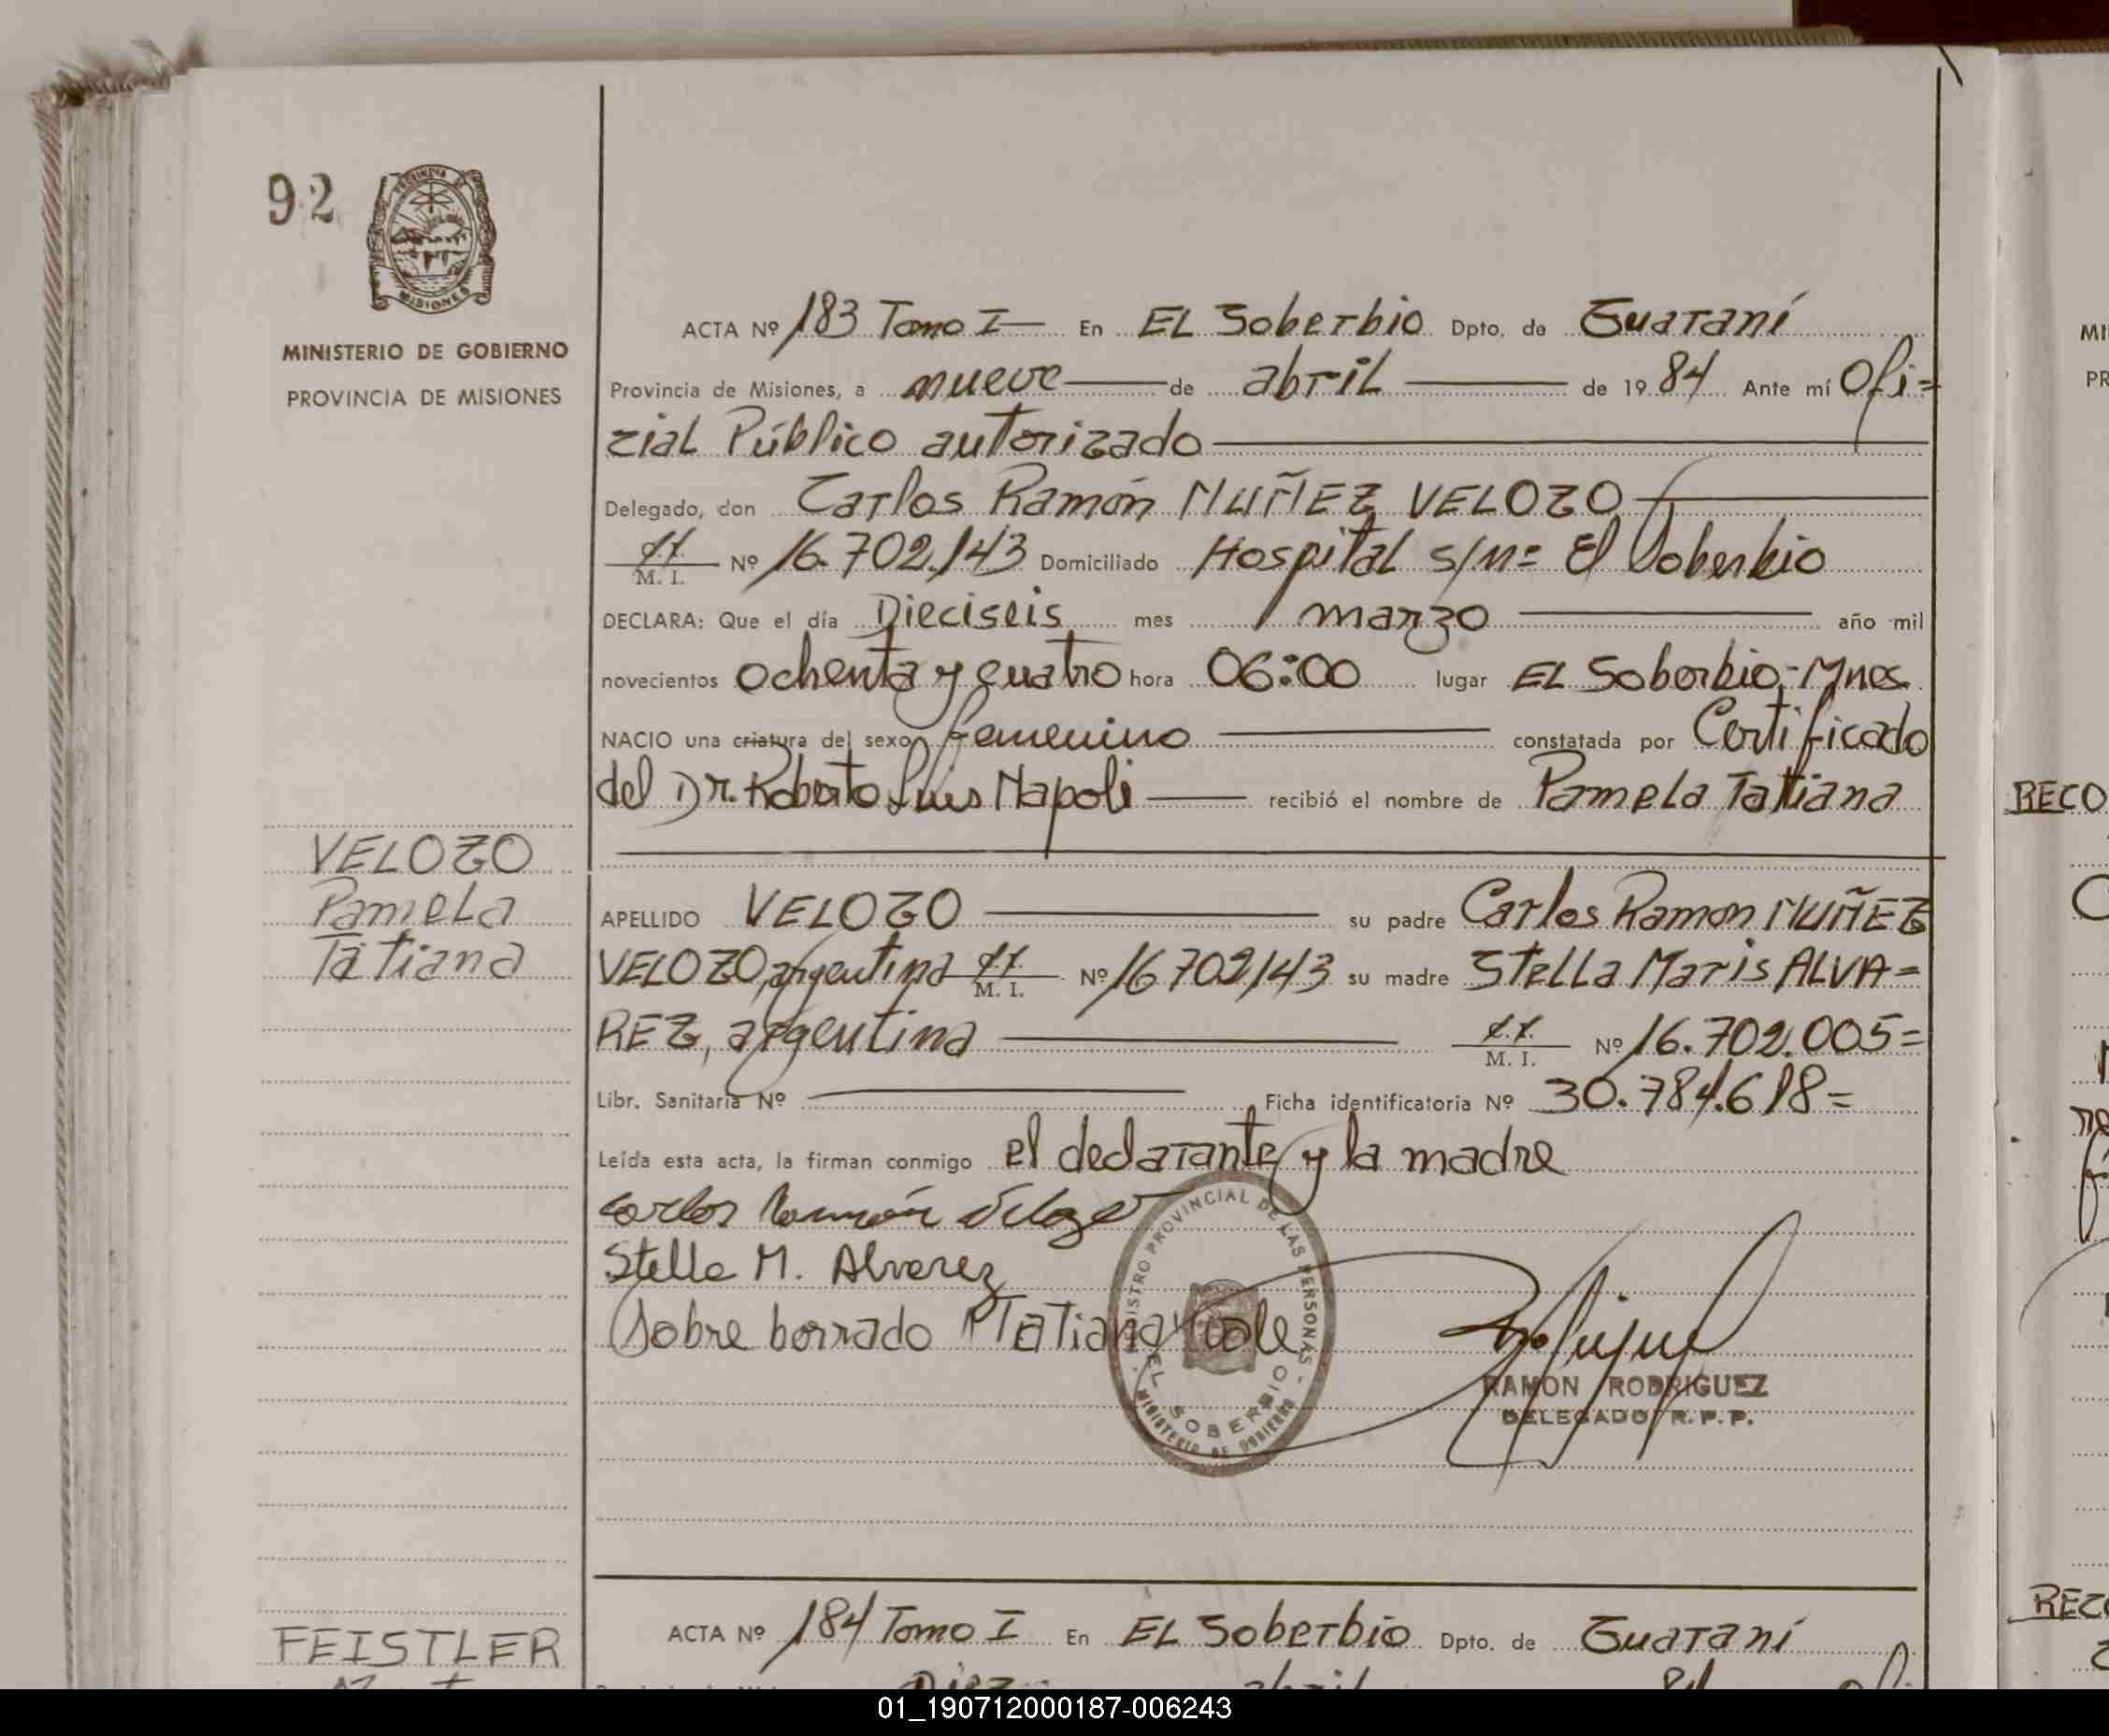 92
MISIONES
MINISTERIO DE GOBIERNO
PROVINCIA DE MISIONES
ACTA Nº 183 Tomo I En EL Soberbio Dpto. de Guaraní
Provincia de Misiones, a nueve de abril de 1984 Ante mí Ofi=
cial Público autorizado
Delegado, don Carlos Ramón NUÑEZ VELOZO
M. I. Nº 16.702.143 Domiciliado Hospital s/nº El Soberbio
DECLARA: Que el día Dieciseis mes marzo año mil
novecientos ochenta y cuatro hora 06:00 lugar EL Soberbio-Mnes.
NACIO una criatura del sexo femenino constatada por Certificado
del Dr. Roberto Luis Napoli recibió el nombre de Pamela Tatiana
VELOZO
Pamela
Tatiana
APELLIDO VELOZO su padre Carlos Ramon NUÑEZ
VELOZO, argentina M. I. Nº 16.702.143 su madre Stella Maris ALVA=
REZ, argentina M. I. Nº 16.702.005=
Libr. Sanitaria Nº Ficha identificatoria Nº 30.784.618=
Leída esta acta, la firman conmigo el declarante y la madre
Carlos Ramón Velozo
Stella M. Alvarez
Sobre borrado Tatiana vale
REGISTRO PROVINCIAL DE LAS PERSONAS
EL SOBERBIO
MINISTERIO DE GOBIERNO
RAMON RODRIGUEZ
DELEGADO R. P. P.
ACTA Nº 184 Tomo I En EL Soberbio Dpto. de Guaraní
FEISTLER
Diez abril 84 Ofi
RECO
01_190712000187-006243